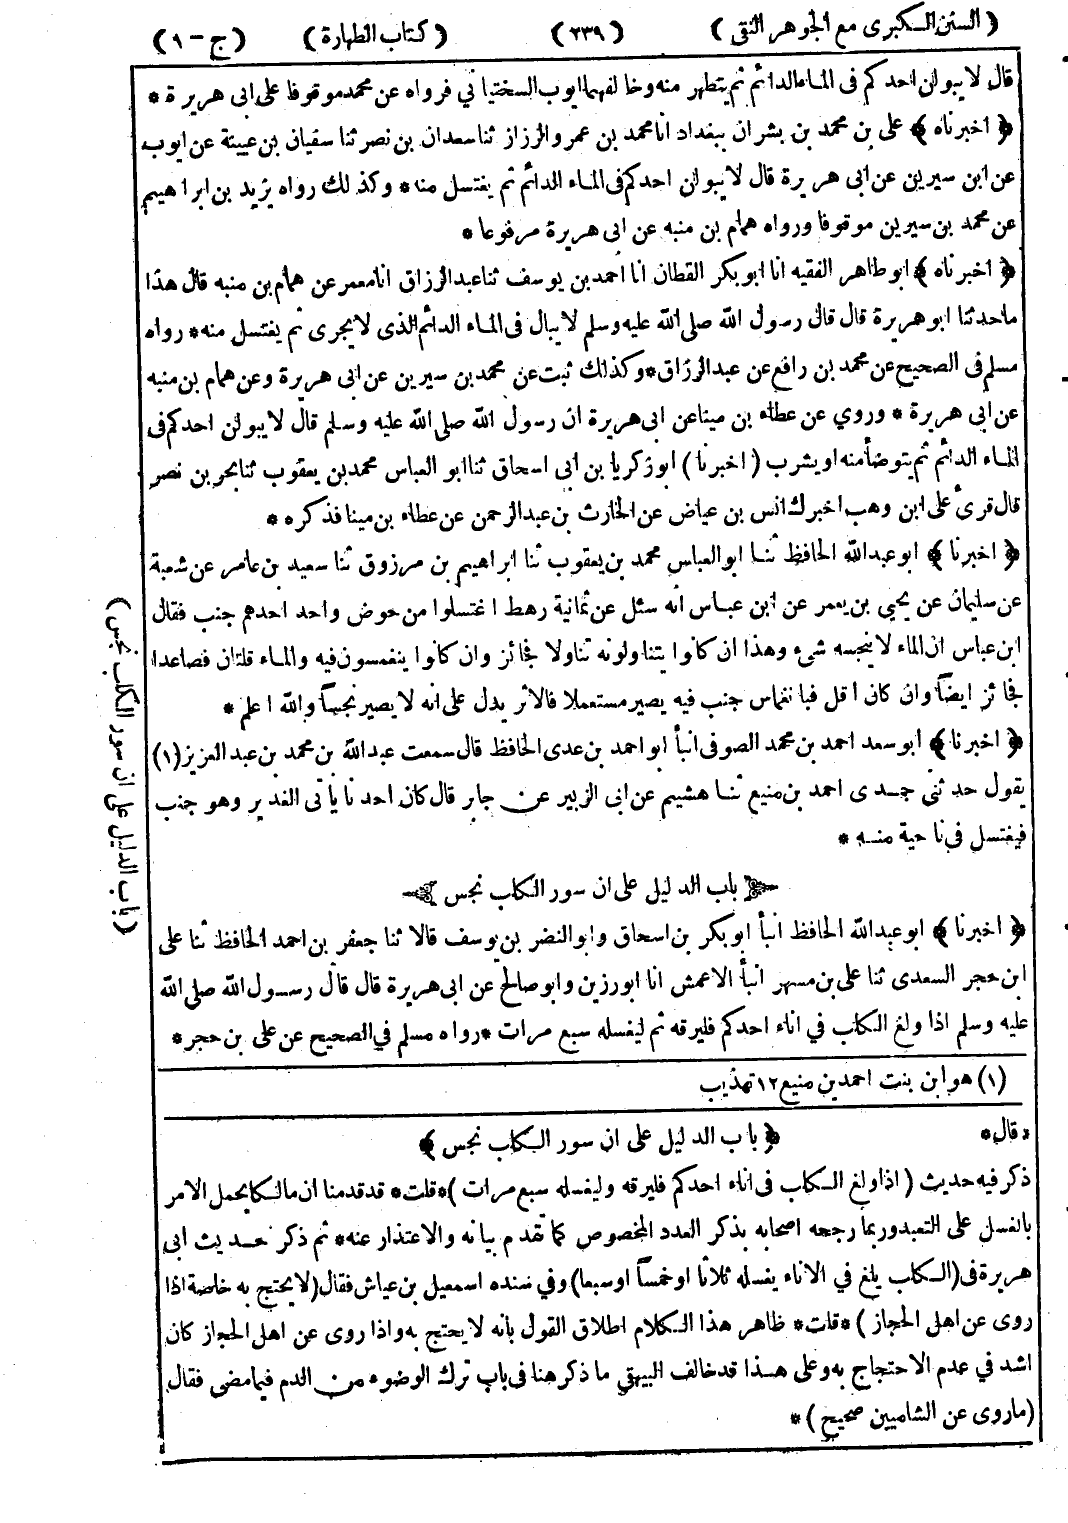 (السنن الكبرى مع الجوهر النقى) (٢٣٩) (كتاب الطهارة) (ج - ١)
قال لا يبولن احدكم فى الماء الدائم ثم يتطهر منه وخالفهما ايوب السختيانى فرواه عن محمد موقوفا على ابى هريرة *
﴿ اخبرناه ﴾ على بن محمد بن بشران ببغداد انا محمد بن عمرو الرزاز ثنا سعدان بن نصر ثنا سفيان بن عيينة عن ايوب
عن ابن سيرين عن ابى هريرة قال لا يبولن احدكم فى الماء الدائم ثم يغتسل منه * وكذلك رواه يزيد بن ابراهيم
عن محمد بن سيرين موقوفا ورواه همام بن منبه عن ابى هريرة مرفوعا *
﴿ اخبرناه ﴾ ابو طاهر الفقيه انا ابو بكر القطان انا احمد بن يوسف ثنا عبد الرزاق انا معمر عن همام بن منبه قال هذا
ما حدثنا ابو هريرة قال قال رسول الله صلى الله عليه وسلم لا يبال فى الماء الدائم الذى لا يجرى ثم يغتسل منه * رواه
مسلم فى الصحيح عن محمد بن رافع عن عبد الرزاق * وكذلك ثبت عن محمد بن سيرين عن ابى هريرة وعن همام بن منبه
عن ابى هريرة * وروي عن عطاء بن مينا عن ابى هريرة ان رسول الله صلى الله عليه وسلم قال لا يبولن احدكم فى
الماء الدائم ثم يتوضأ منه او يشرب (اخبرنا) ابو زكريا بن ابى اسحاق ثنا ابو العباس محمد بن يعقوب ثنا بحر بن نصر
قال قرئ على ابن وهب اخبرك انس بن عياض عن الحارث بن عبد الرحمن عن عطاء بن مينا فذكره *
﴿ اخبرنا ﴾ ابو عبد الله الحافظ ثنا ابو العباس محمد بن يعقوب ثنا ابراهيم بن مرزوق ثنا سعيد بن عامر عن شعبة
عن سليمان عن يحيى بن يعمر عن ابن عباس انه سئل عن ثمانية رهط اغتسلوا من حوض واحد احدهم جنب فقال
ابن عباس ان الماء لا ينجسه شيء وهذا ان كانوا يتناولونه تناولا فجائز وان كانوا ينغمسون فيه والماء قلتان فصاعدا
فجائز ايضاً وان كان اقل فبانغماس جنب فيه يصير مستعملا فالاثر يدل على انه لا يصير نجساً والله اعلم *
﴿ اخبرنا ﴾ ابو سعد احمد بن محمد الصوفى انبأ ابو احمد بن عدى الحافظ قال سمعت عبد الله بن محمد بن عبد العزيز (١)
يقول حدثنى جدى احمد بن منيع ثنا هشيم عن ابى الزبير عن جابر قال كان احدنا يأتى الغدير وهو جنب
فيغتسل فى ناحية منه *
﴿ باب الدليل على ان سور الكلب نجس ﴾
﴿ اخبرنا ﴾ ابو عبد الله الحافظ انبأ ابو بكر بن اسحاق وابو النضر بن يوسف قالا ثنا جعفر بن احمد الحافظ ثنا على
ابن حجر السعدى ثنا على بن مسهر انبأ الاعمش انا ابو رزين وابو صالح عن ابى هريرة قال قال رسول الله صلى الله
عليه وسلم اذا ولغ الكلب فى اناء احدكم فليرقه ثم ليغسله سبع مرات * رواه مسلم فى الصحيح عن على بن حجر *
(باب الدليل على ان سور الكلب نجس)
(١) هو ابن بنت احمد بن منيع ١٢ تهذيب
* قال * ﴿ باب الدليل على ان سور الكلب نجس ﴾
ذكر فيه حديث (اذا ولغ الكلب فى اناء احدكم فليرقه وليغسله سبع مرات) * قلت * قد قدمنا ان مالكا يحمل الامر
بالغسل على التعبد وربما رجحه اصحابه بذكر العدد المخصوص كما تقدم بيانه والاعتذار عنه * ثم ذكر حديث ابى
هريرة فى (الكلب يلغ فى الاناء يغسله ثلاثا او خمساً او سبعا) وفي سنده اسمعيل بن عياش فقال (لا يحتج به خاصة اذا
روى عن اهل الحجاز) * قلت * ظاهر هذا الكلام اطلاق القول بانه لا يحتج به واذا روى عن اهل الحجاز كان
اشد في عدم الاحتجاج به وعلى هذا قد خالف البيهقي ما ذكر هنا فى باب ترك الوضوء من الدم فيما مضى فقال
(ما روى عن الشاميين صحيح) *